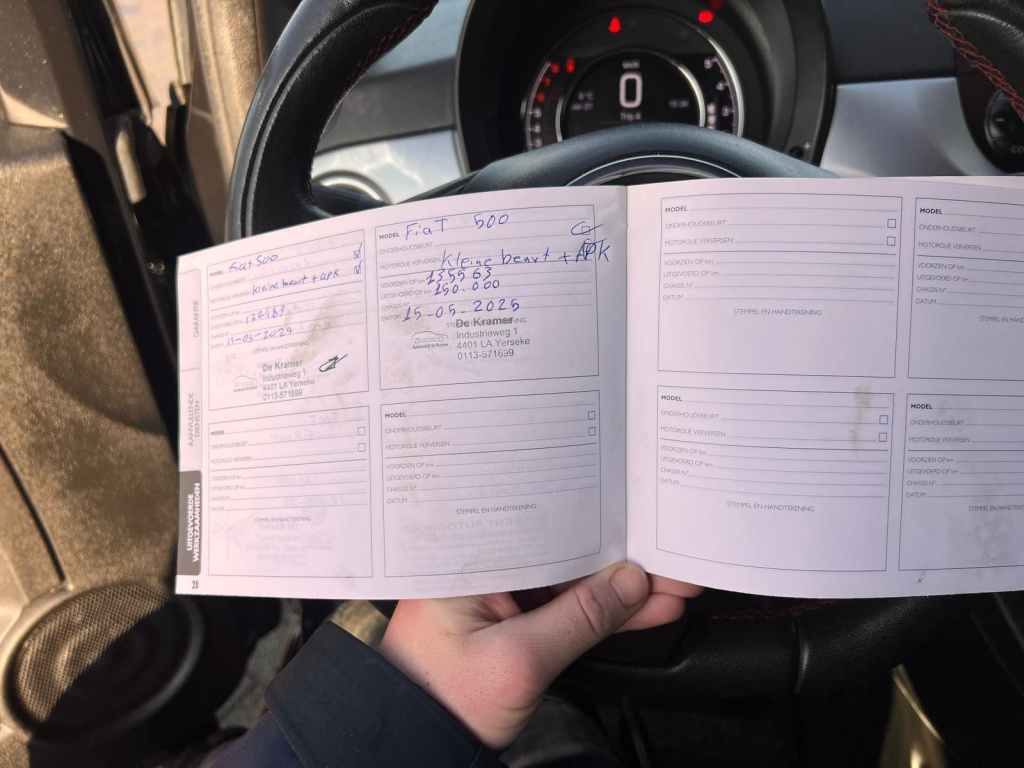 0
GARANTIE
AANVULLENDE
DIENSTEN
UITGEVOERDE
WERKZAAMHEDEN
28
MODEL Sut 500
ONDERHOUDSBEURT
MOTOROLIE VERVERSEN Kleine beurt + APK
VOORZIEN OP km
UITGEVOERD OP km
CHASSIS N°
DATUM 19-05-2024
STEMPEL EN HANDTEKENING
De Kramer
Industrieweg 1
4401 LA Yerseke
0113-571699
MODEL FiaT 500
ONDERHOUDSBEURT
MOTOROLIE VERVERSEN Kleine beurt + APK
VOORZIEN OP km 135563
UITGEVOERD OP km 150.000
CHASSIS N°
DATUM 15-05-2025
STEMPEL EN HANDTEKENING
De Kramer
Industrieweg 1
4401 LA Yerseke
0113-571699
MODEL
ONDERHOUDSBEURT
MOTOROLIE VERVERSEN
VOORZIEN OP km
UITGEVOERD OP km
CHASSIS N°
DATUM
STEMPEL EN HANDTEKENING
MODEL
ONDERHOUDSBEURT
MOTOROLIE VERVERSEN
VOORZIEN OP km
UITGEVOERD OP km
CHASSIS N°
DATUM
STEMPEL EN HANDTEKENING
MODEL
ONDERHOUDSBEURT
MOTOROLIE VERVERSEN
VOORZIEN OP km
UITGEVOERD OP km
CHASSIS N°
DATUM
STEMPEL EN HANDTEKENING
MODEL
ONDERHOUDSBEURT
MOTOROLIE VERVERSEN
VOORZIEN OP km
UITGEVOERD OP km
CHASSIS N°
DATUM
STEMPEL EN
MODEL
ONDERHOUDSBEURT
MOTOROLIE VERVERSEN
VOORZIEN OP km
UITGEVOERD OP km
CHASSIS N°
DATUM
STEMPEL EN HANDTEKENING
MODEL
ONDERHOUDSBEURT
MOTOROLIE VERVERSEN
VOORZIEN OP km
UITGEVOERD OP km
CHASSIS N°
DATUM
STEMPEL EN